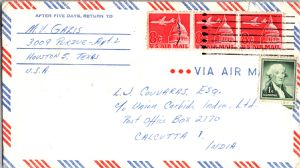 AFTER FIVE DAYS, RETURN TO
M.V. GALIS
3009 PERDUE - Apt 2
HOUSTON 5, TEXAS
U.S.A
U.S. AIR MAIL
VIA AIR MAI
L.J. COUVARAS, ESQ.
c/o Union Carbide India, Ltd
Post Office Box 2170
CALCUTTA 1
INDIA